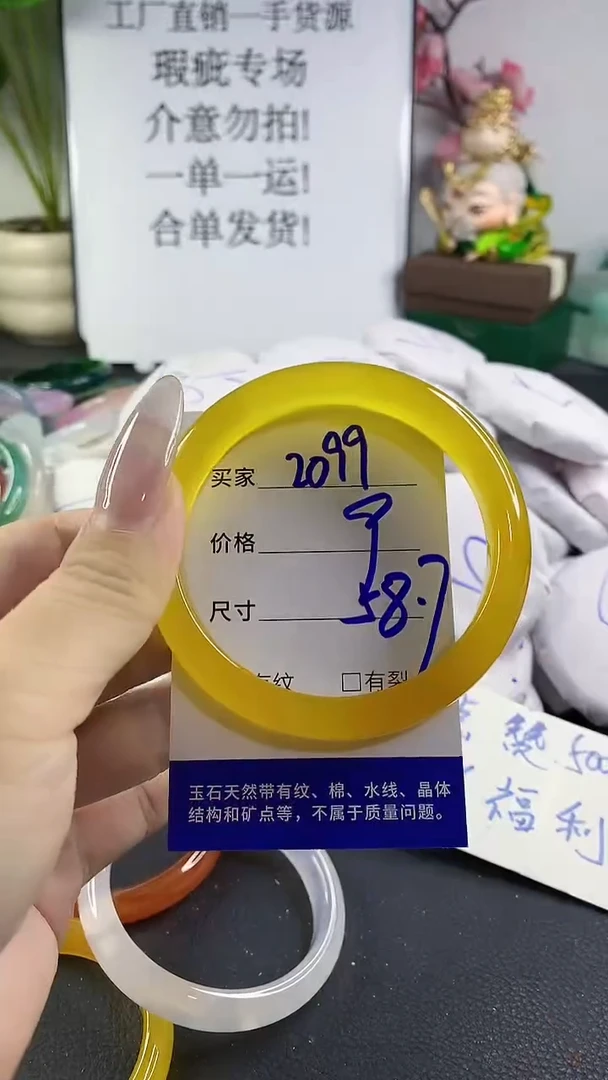 工厂直销一手货源
瑕疵专场
介意勿拍!
一单一运!
合单发货!
买家 2099
价格
尺寸 58.7
有纹 □有裂
玉石天然带有纹、棉、水线、晶体
结构和矿点等，不属于质量问题。
赞500
福利